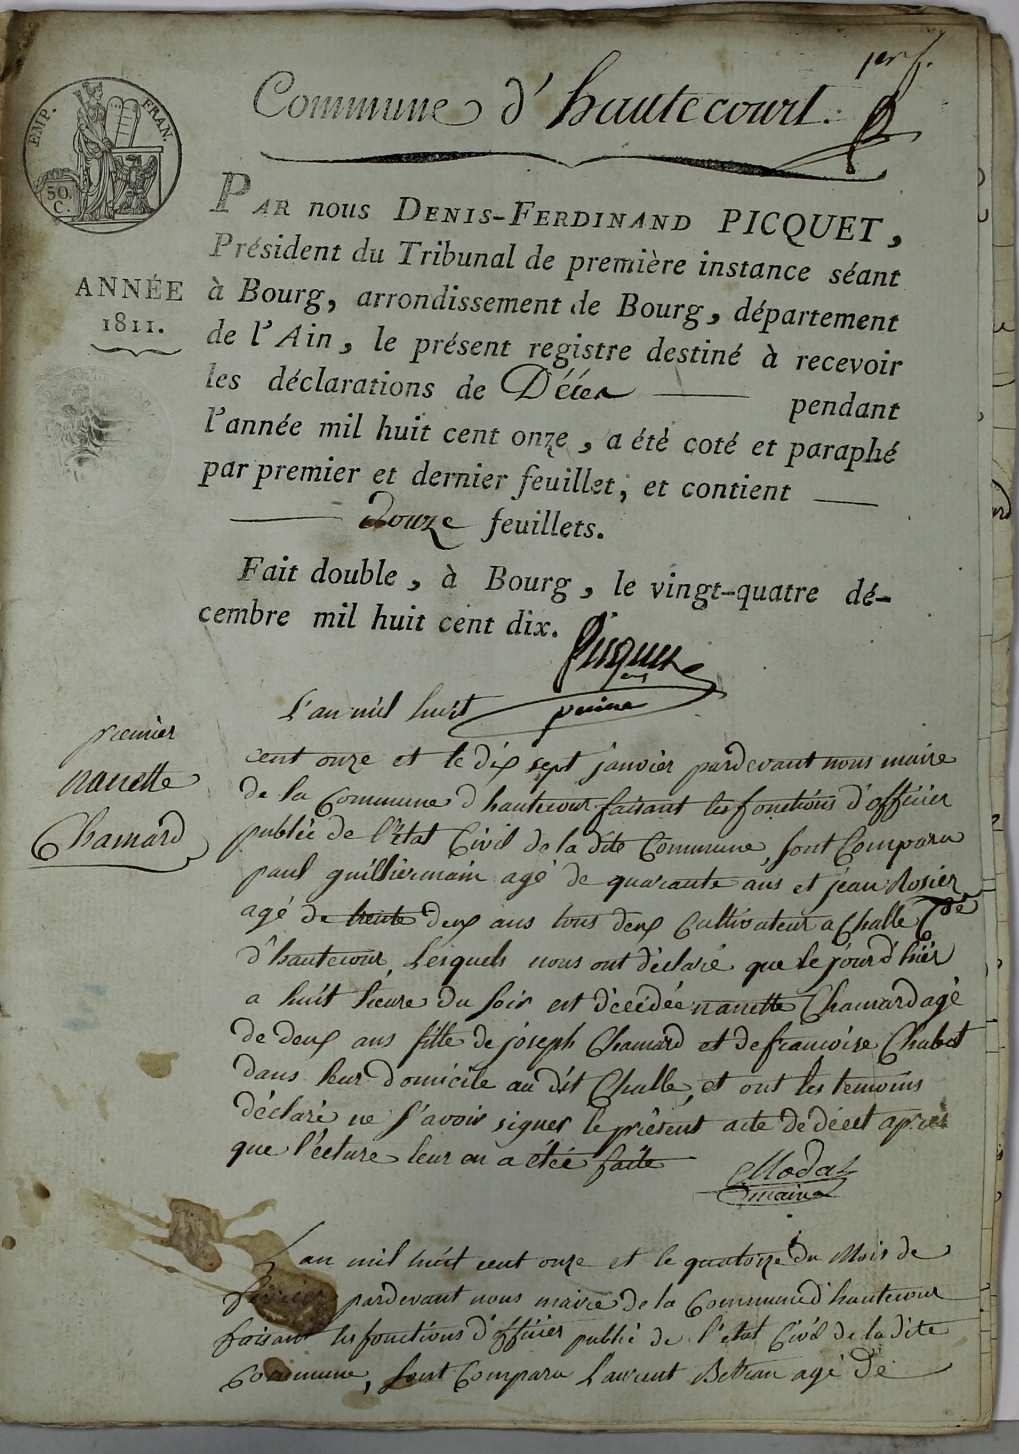 per f.
Commune d'hautecourt.
EMP. FRAN.
50.
C.
PAR nous DENIS-FERDINAND PICQUET,
Président du Tribunal de première instance séant
ANNÉE
1811.
à Bourg, arrondissement de Bourg, département
de l'Ain, le présent registre destiné à recevoir
les déclarations de Décès pendant
l'année mil huit cent onze, a été coté et paraphé
par premier et dernier feuillet, et contient
douze feuillets.
Fait double, à Bourg, le vingt-quatre dé-
cembre mil huit cent dix.
Picquet
L'an mil huit
premier
nanette
Chamard
cent onze et le dix sept janvier pardevant nous maire
de la Commune d'hautecour faisant les fonctions d'officier
public de l'état Civil de la dite Commune, sont Comparu
paul guilliermain agé de quarante ans et jean Rosier
agé de trente deux ans tous deux Cultivateur a Challe Cde
d'hautecour, Lesquels nous ont déclaré que le jour d'hièr
a huit heure du soir est décédée nanette Chamard agé
de deux ans fille de joseph Chamard et de francoise Chabot
dans leur domicile au dit Challe, et ont les temoins
déclaré ne s'avoir signer le présent acte de décet après
que l'ecture leur en a étée faite
Modas
maire
Lan mil huit cent onze et le quatorze du Mois de
février pardevant nous maire de la Commune d'hautecour
faisant les fonctions d'officier public de l'etat Civil de la dite
Commune, sont Comparu Laurent Betran agé de